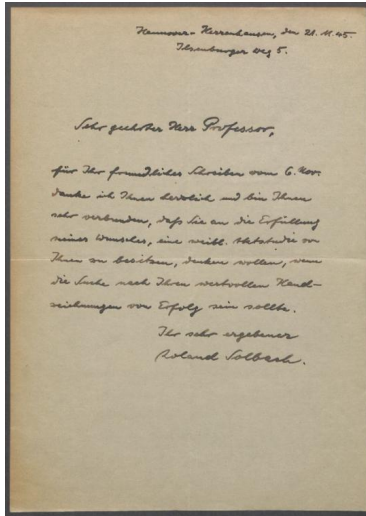 Hannover-Herrenhausen, den 21.11.45.
Ilsenburger Weg 5.
Sehr geehrter Herr Professor,
für Ihr freundliches Schreiben vom 6. Nov.
danke ich Ihnen herzlich und bin Ihnen
sehr verbunden, daß Sie an die Erfüllung
meines Wunsches, eine weibl. Aktstudie von
Ihnen zu besitzen, denken wollen, wenn
die Suche nach Ihren wertvollen Hand-
zeichnungen von Erfolg sein sollte.
Ihr sehr ergebener
Roland Solbach.